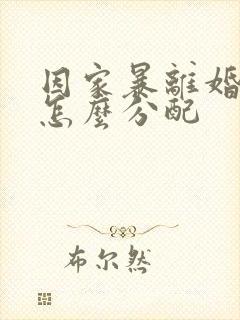 因家暴離婚
怎麼分配
布尔然